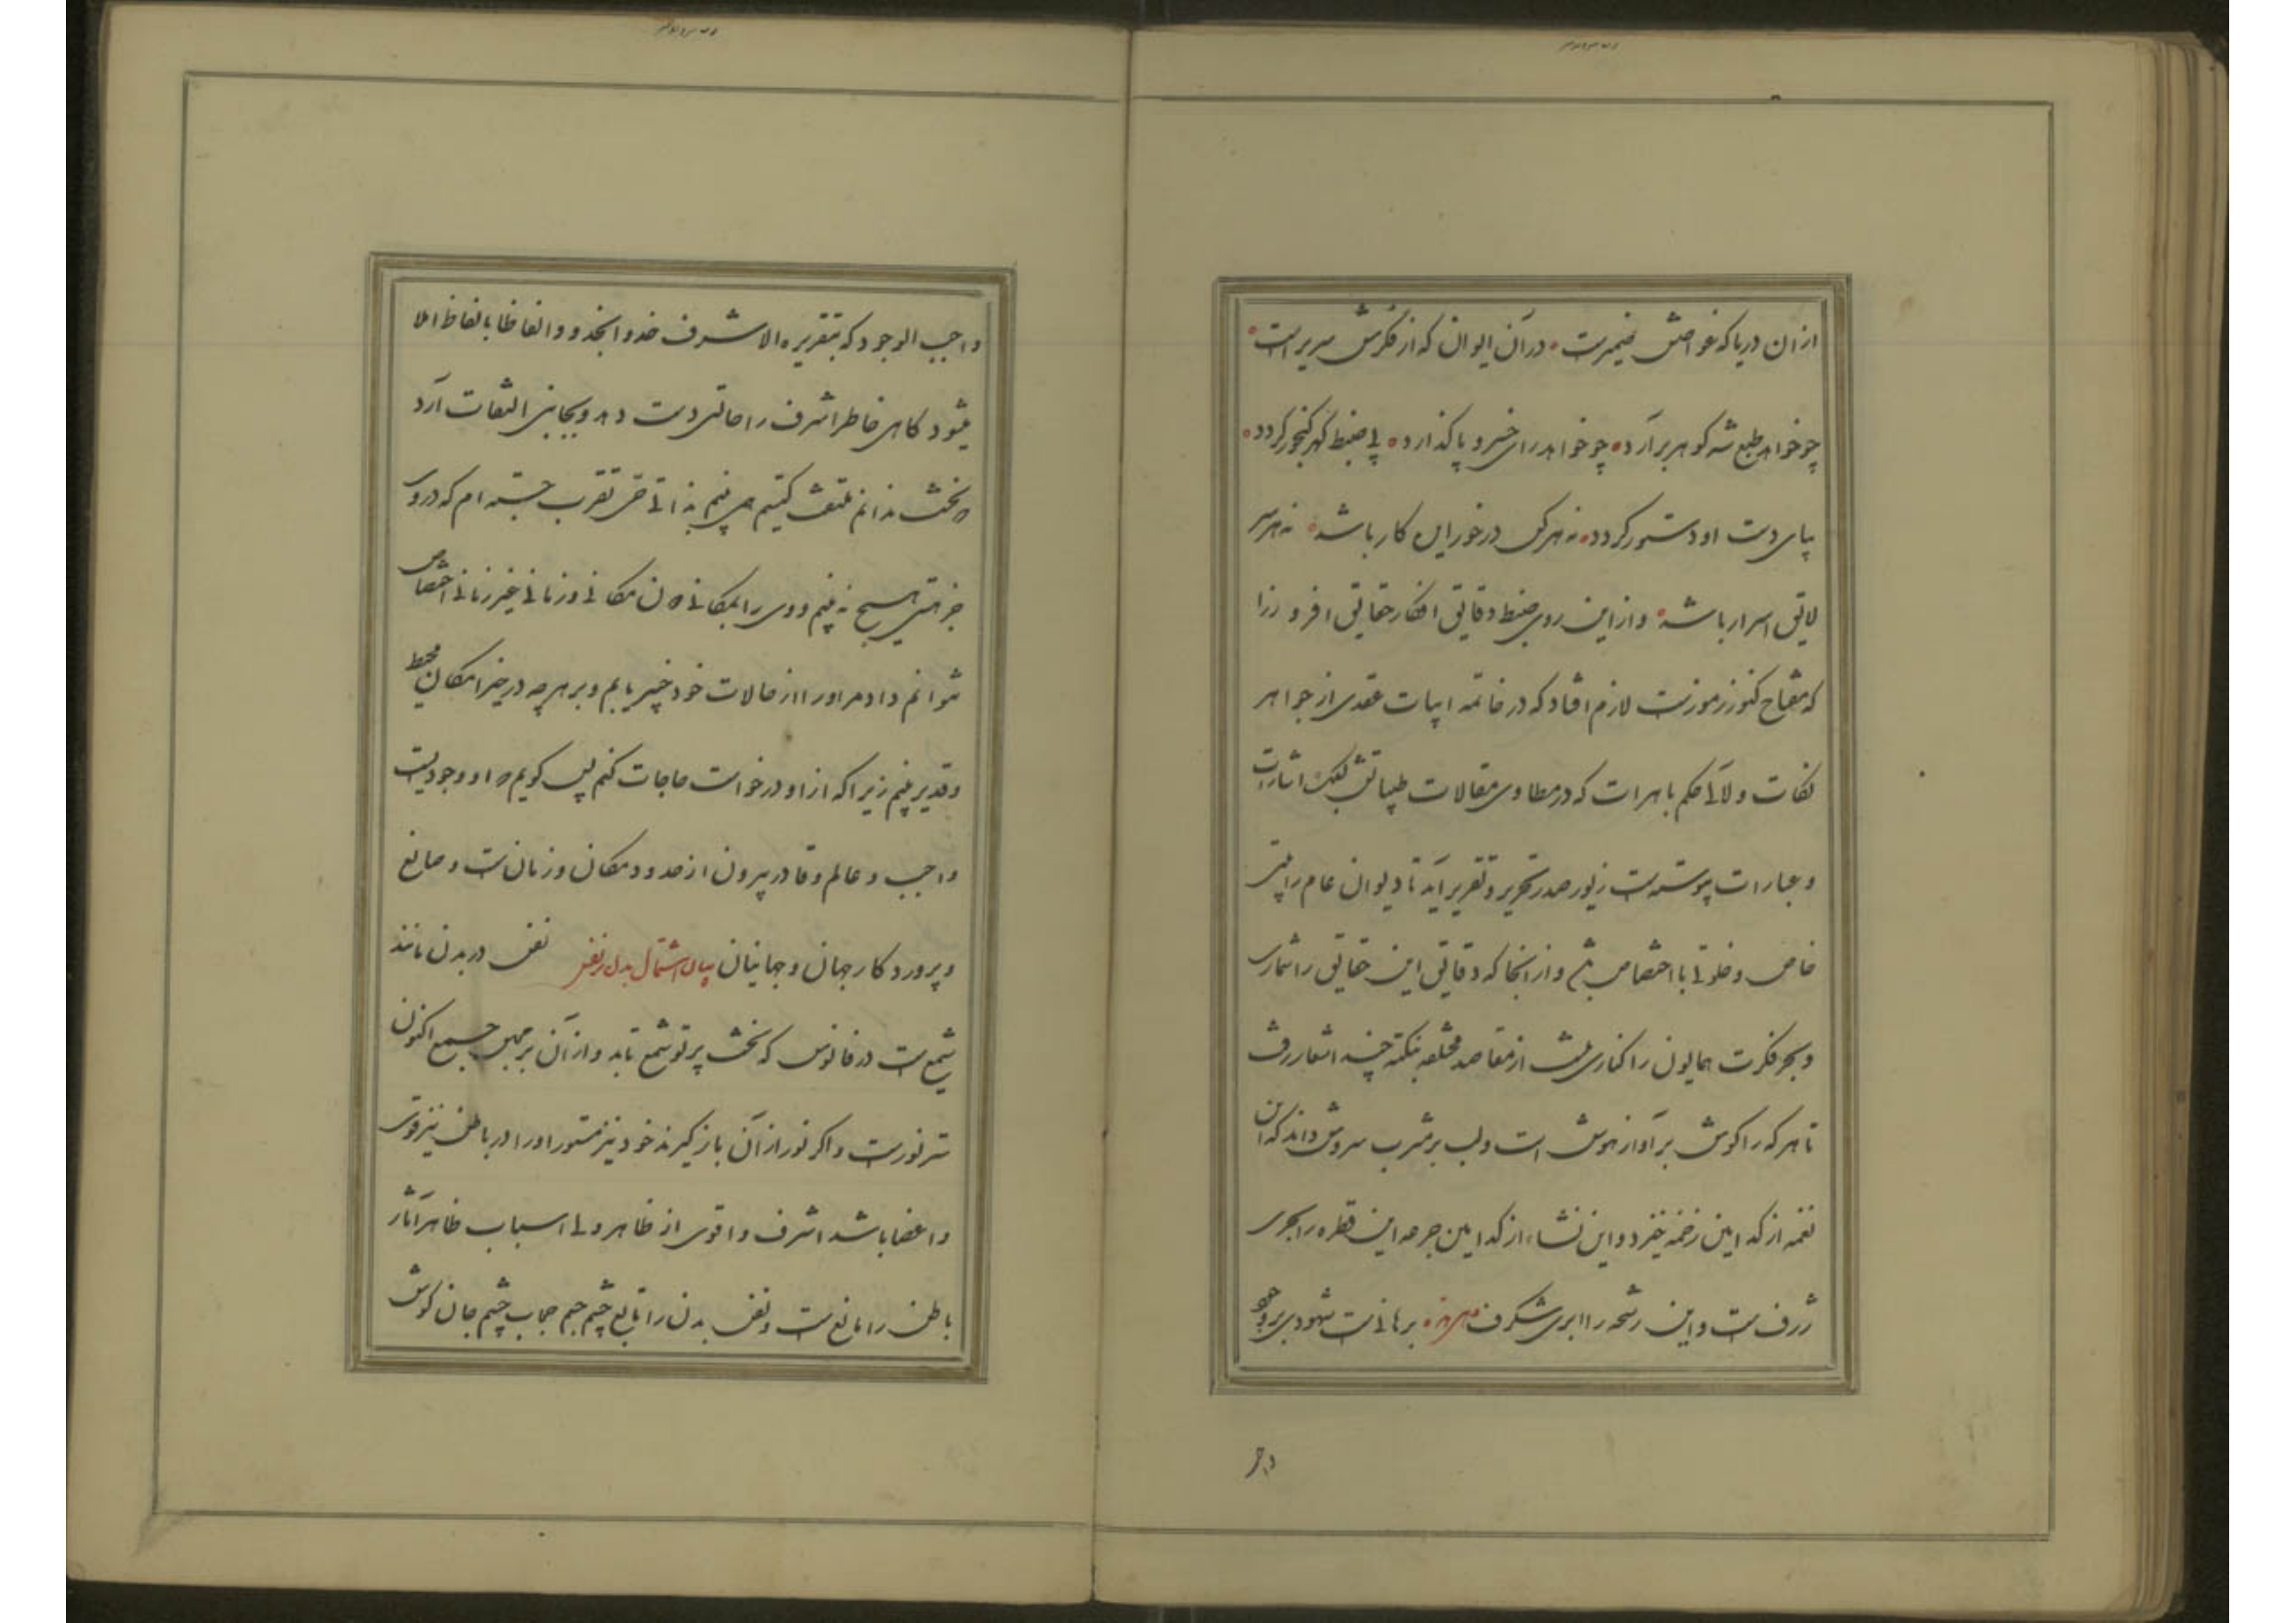 از آن دریا که غواصش ضمیرست در آن ایوان که از فکرش سریر است
چو خواهد طبع شه کوهر برآرد چو خواهد رای خسرو پا کذارد پی ضبط کهر کنجور کردد
بپای دست او دستور کردد نه هر کس در خور این کار باشد نه هر سر
لایق اسرار باشد و از این روی ضبط دقایق افکار حقایق افروز را
که مفتاح کنوز رموزست لازم افتاد که در خاتمه ابیات عقدی از جواهر
نکات و لآلی حکم باهرات که در مطاوی مقالات طیبات بکشف اشارات
و عبارات پیوسته‌ست زیور صدر تحریر و تقریر آید تا دیوان عام را بیتی
خاص و خلوتی با اختصاص باشد و از آنجا که دقایق این حقایق را شماری
و بحر فکرت همایون را کناری نیست از مقاصد مختلفه بنکته چند اشعار رفت
تا هر که را کوش بر آواز هوش است و لب بر شرب سروش داند که این
نغمه از کدامین زخمه خیزد و این نشاء از کدامین جرعه این قطره را بحری
ژرف‌ست و این رشحه را ابری شکرف برهانی‌ست شهودی بر وجود
واجب
واجب الوجود که بتقریر والا شرف خدو انجدو و الفاظا بالفاظ املا
میشود کاهی خاطر اشرف را حالتی دست دهد و بجانبی التفات آرد
که نخست ندانم ملتفت کیستم همی بینم بذاتی حق تقرب جسته ام که در وی
جز هستی هیچ نه بینم و وی را بمکانی دون مکانی و زمانی غیر زمانی اختصاص
نتوانم داد مر او را از حالات خود خبیر یابم و بر هر چه در حیز امکان محیط
و قدیر بینم زیرا که از او درخواست حاجات کنم پس کویم که او وجودیست
واجب و عالم و قادر بیرون از حدود مکان و زمان‌ست و صانع
و پروردکار جهان و جهانیان بیان اشتمال بدن بر نفس نفس در بدن مانند
شمع‌ست در فانوس که نخست پرتو شمع تابد و از آن بر جسم اکنون
ستر نورست و اکر نور از آن باز کیرند خود نیز مستور او را در باطن نیز قوی
و اعضا باشد اشرف و اقوی از ظاهر ولی اسباب ظاهر آثار
باطن را مانع‌ست و نفس بدن را تابع چشم جسم حجاب چشم جان کوش